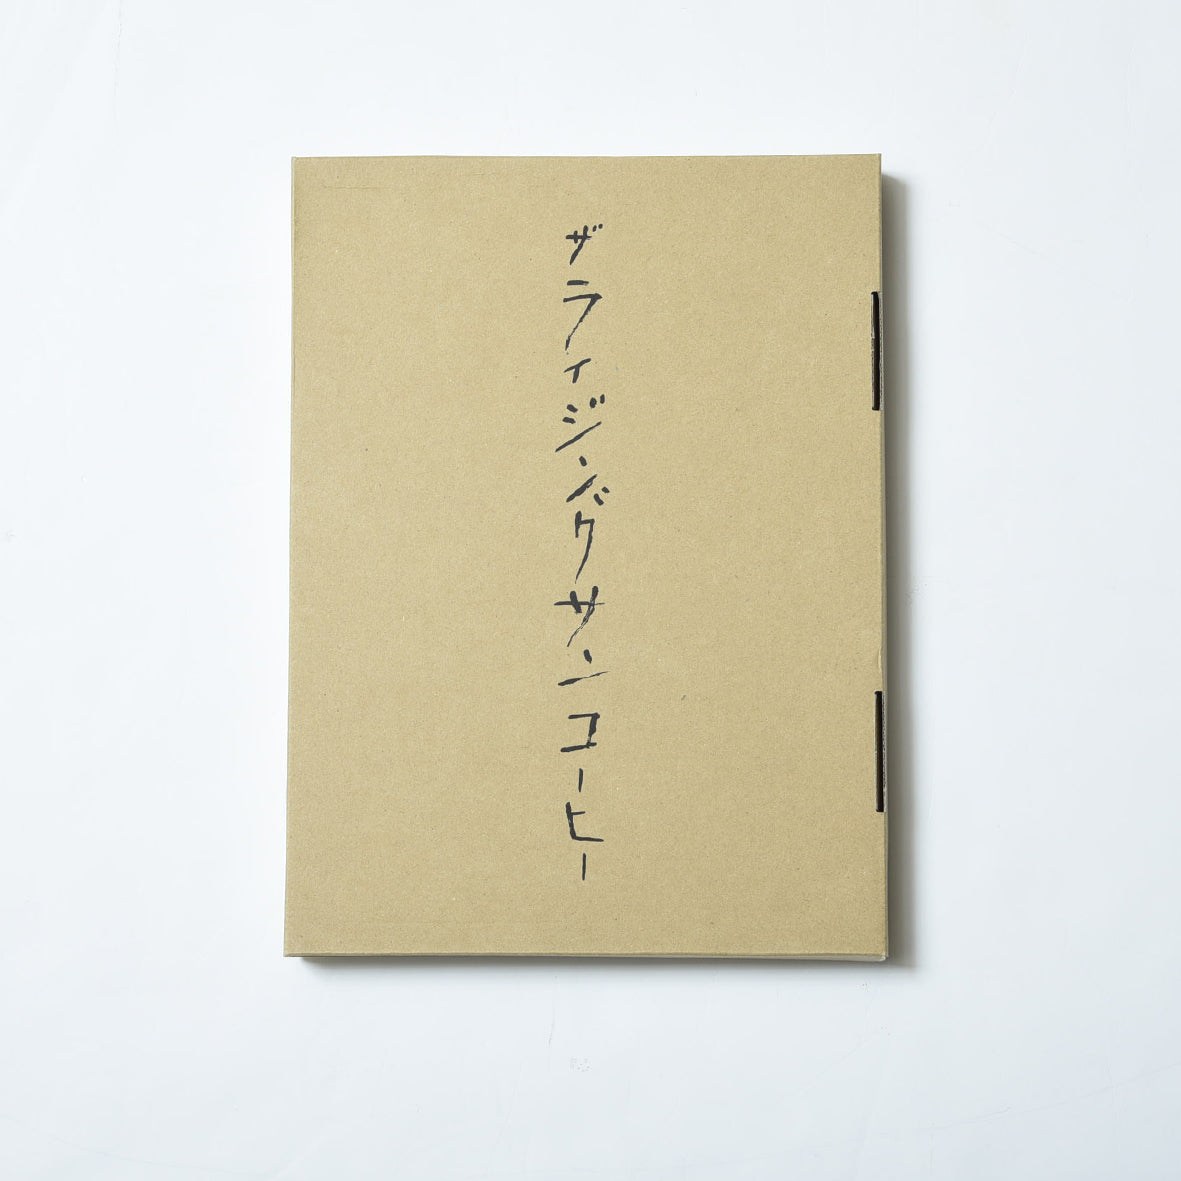 ザライジングサンコーヒー